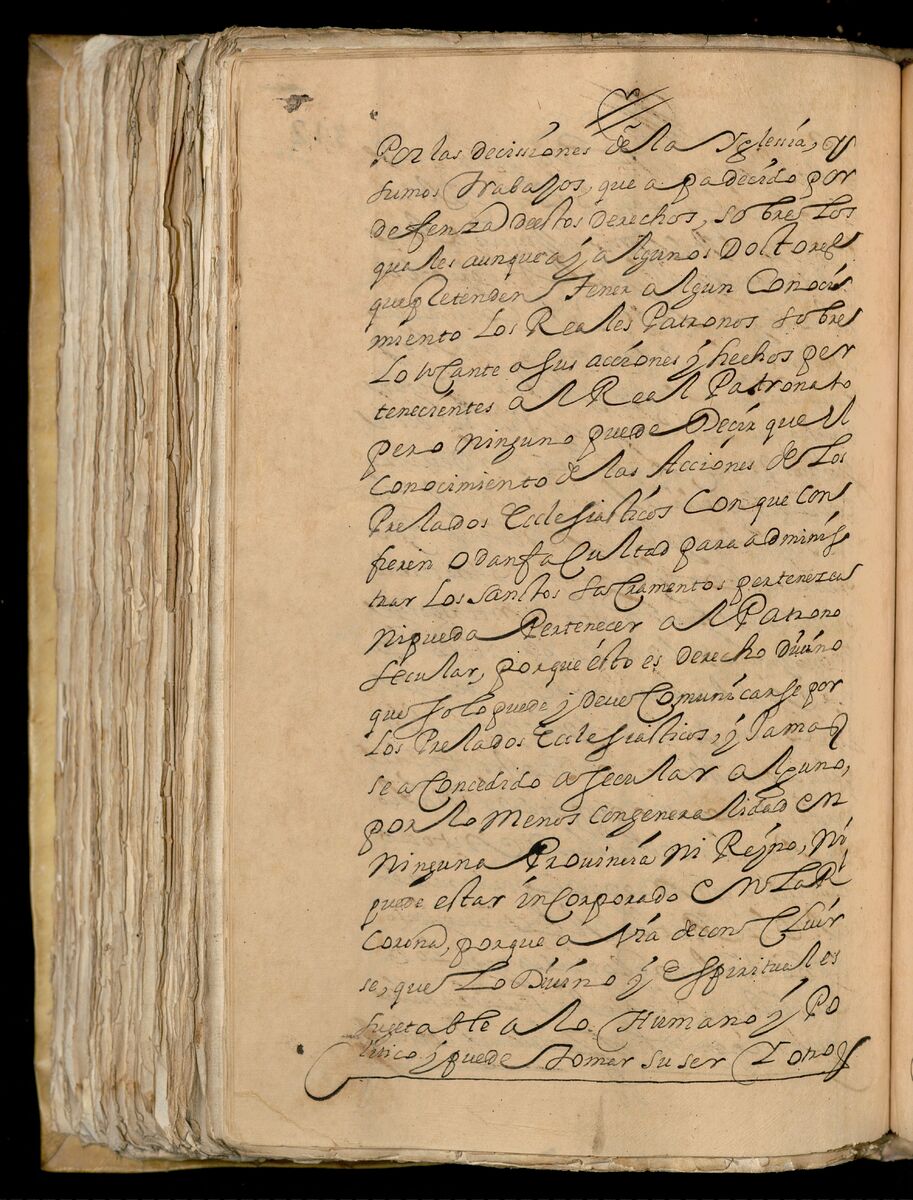 Por las decissiones de la Yglesia, y
sumos Trabajos, que a padecido por
defenza destos derechos, sobre los
quales aunque aÿ algunos Doctores
que pretenden tener algun Conoci
miento los Reales Patronos sobre
Lo tocante a sus acciones ÿ hechos per
tenecientes al Real Patronato
pero ninguno puede Decir que el
Conocimiento de las Acciones de los
Prelados Ecclesiasticos Con que Con
fieren o dan facultad para adminis
trar los santos sacramentos pertenezca
Ni pueda Pertenecer al Patrono
secular, porque esto es derecho Diuino
que solo puede ÿ deue Comunicarse por
los Prelados Ecclesiasticos, ÿ Jamas
se a Concedido a secular alguno,
por lo menos con generalidad en
Ninguna Prouincia Ni Reÿno, Ni
puede estar incorporado en la Rl
Corona, porque a Via de con Cluir
se, que lo Diuino ÿ Espirituales
sugetable a lo Humano ÿ Po
litico ÿ puede tomar su ser